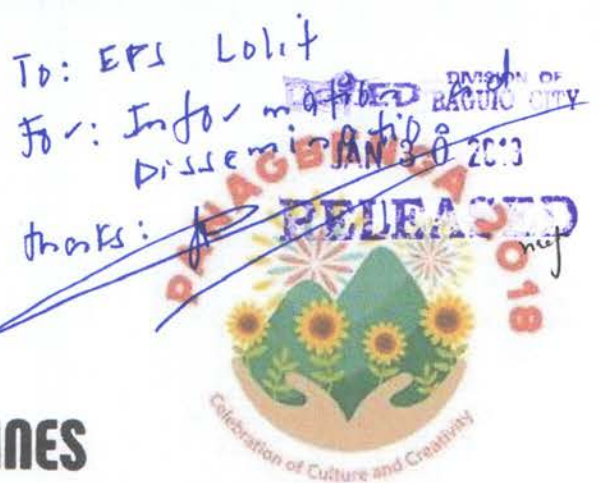 To: EPS Lolit
For: Information and
Dissemination
thanks:
DepED DIVISION OF
BAGUIO CITY
JAN 30 2018
RELEASED
PANAGBENGA 2018
Celebration of Culture and Creativity
INES